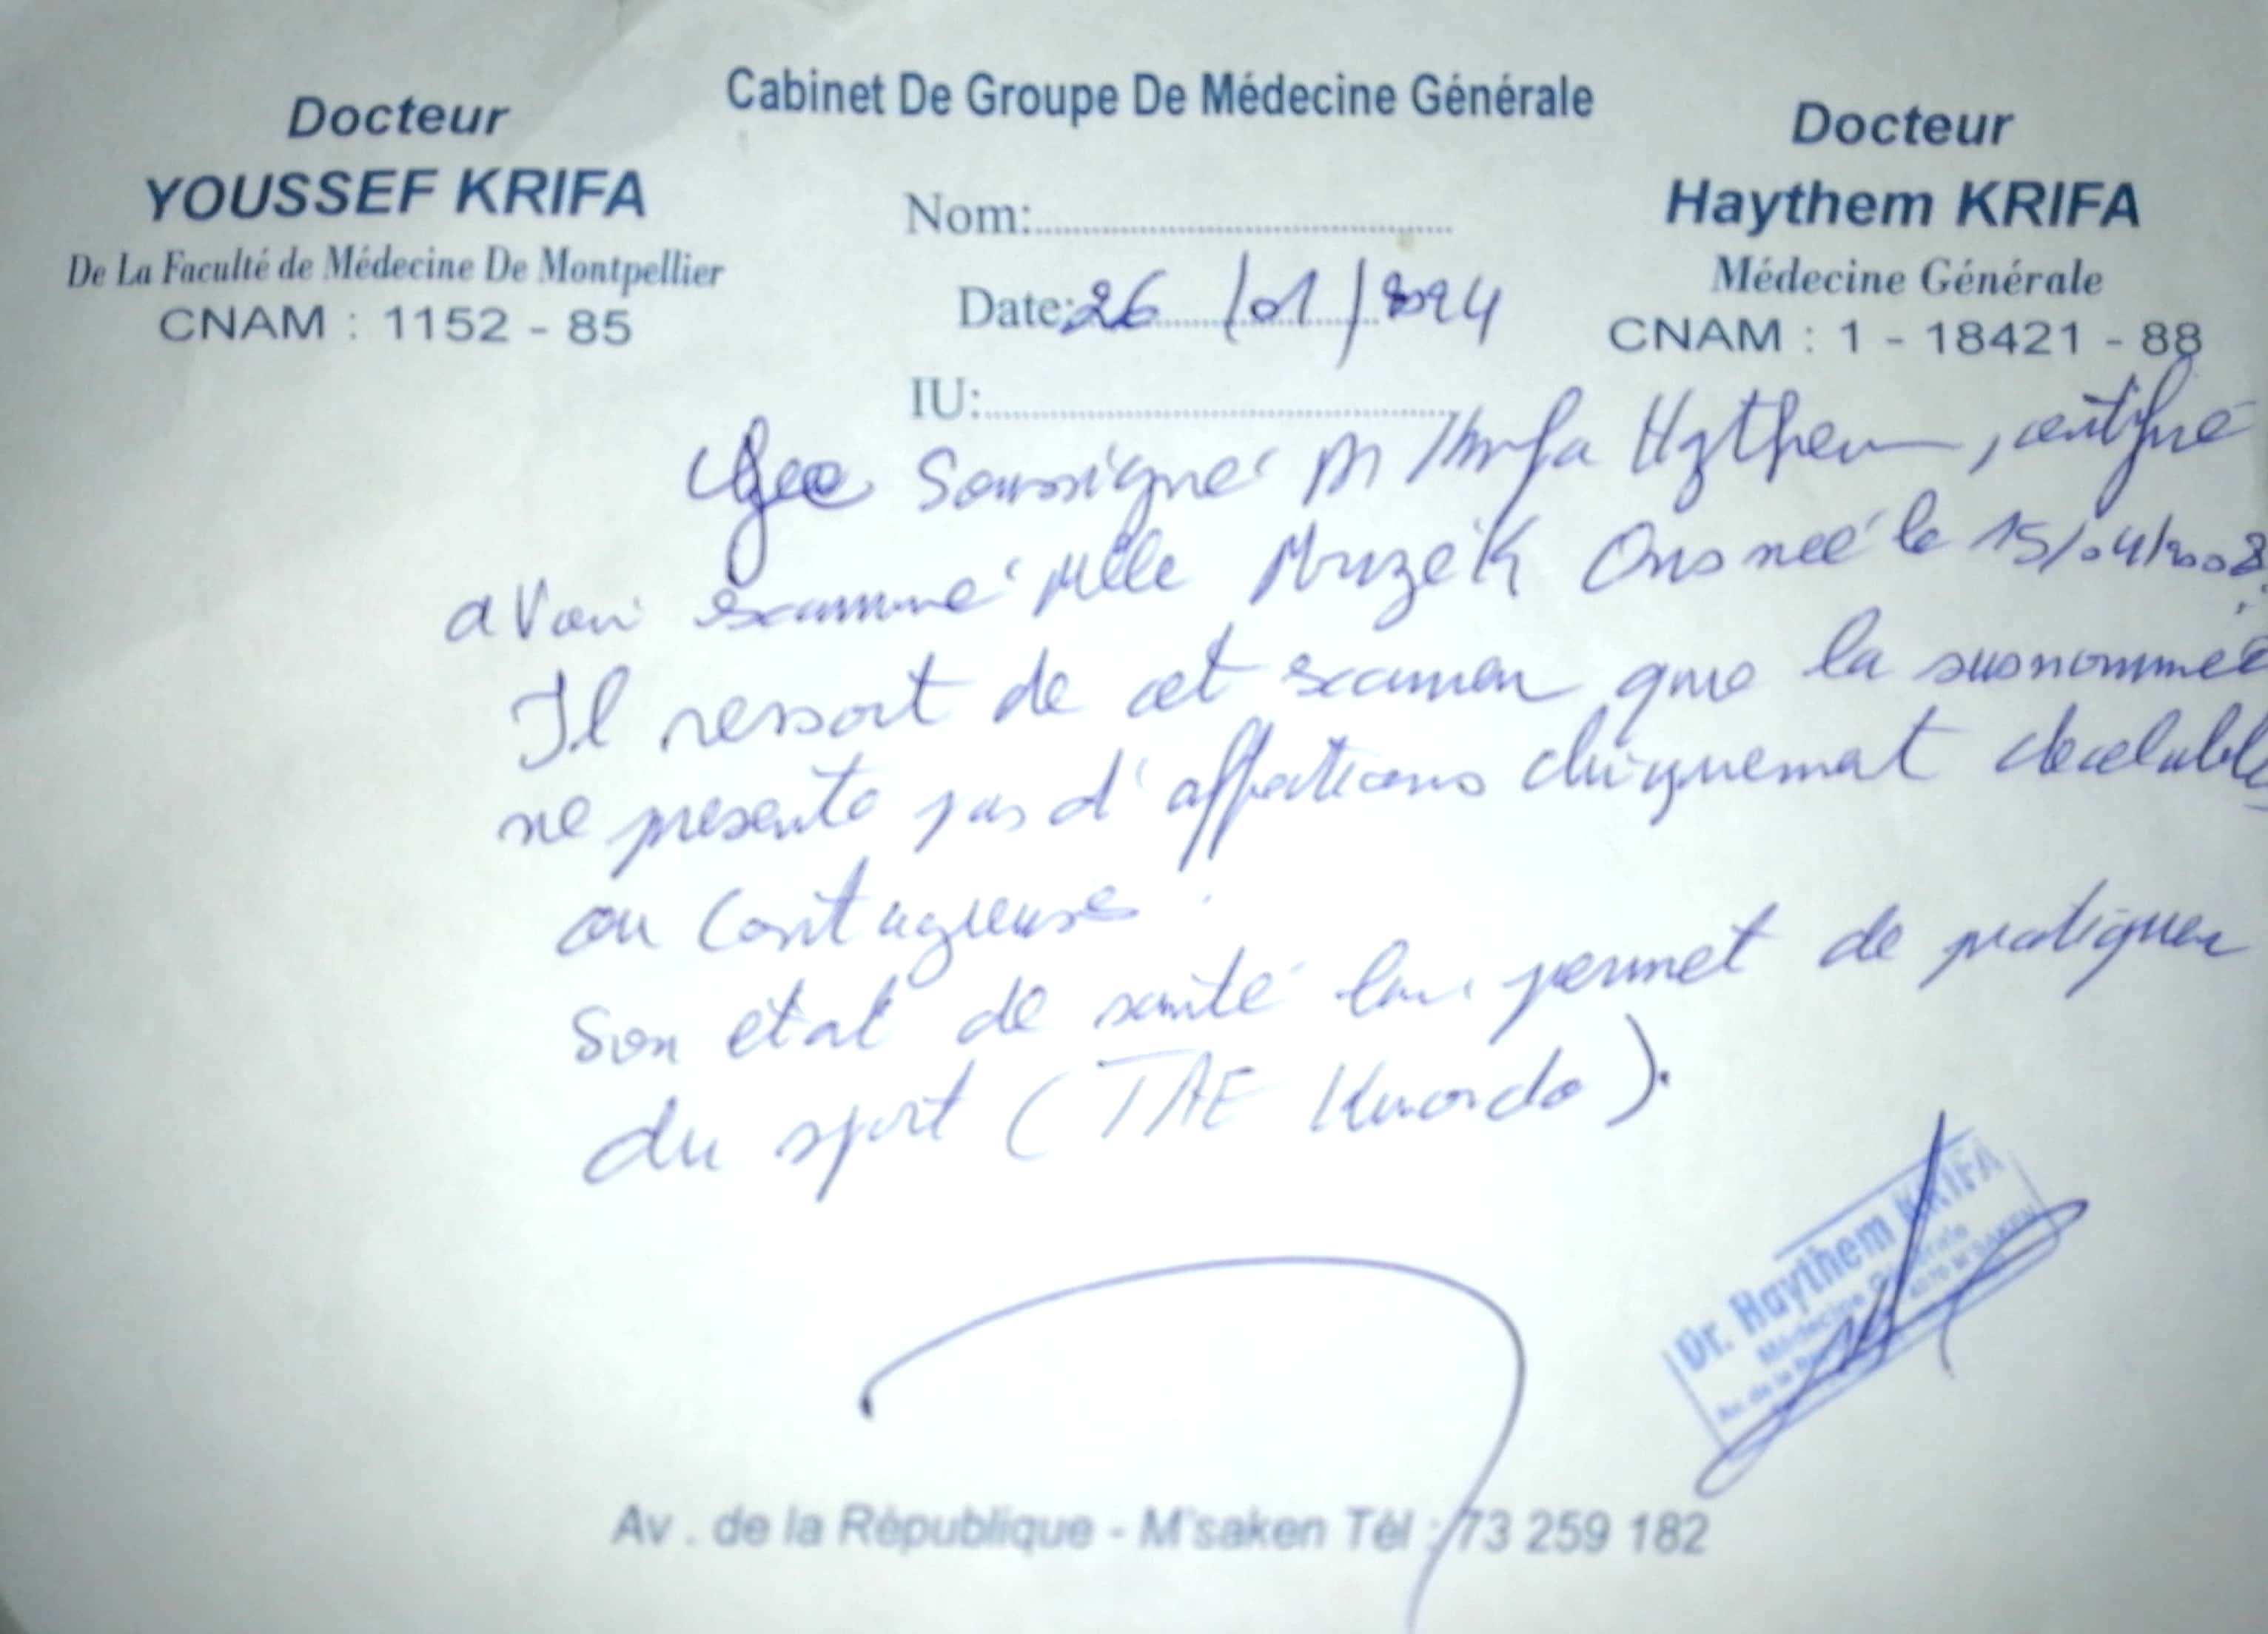 Cabinet De Groupe De Médecine Générale
Docteur
YOUSSEF KRIFA
De La Faculté de Médecine De Montpellier
CNAM : 1152 - 85
Docteur
Haythem KRIFA
Médecine Générale
CNAM : 1 - 18421 - 88
Nom:
Date: 26 / 01 / 2024
IU:
Soussigné Krifa Haythem, certifie
avoir examiné Mlle Mrizek Ons née le 15/04/2008.
Il ressort de cet examen que la susnommée
ne presente pas d'affections cliniquement decelable
ou Contagieuse.
Son état de santé lui permet de pratiquer
du sport (TAE Kwondo).
Dr. Haythem KRIFA
Médecine Générale
Av. de la 4070 M'SAKEN
Av . de la République - M'saken Tél : 73 259 182